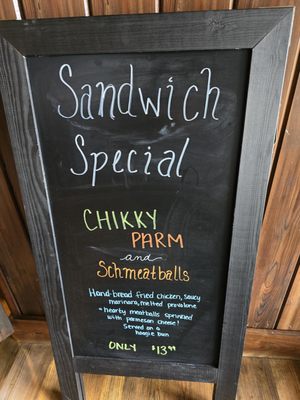 Sandwich
Special
CHIKKY
PARM
and
Schmeatballs
Hand-bread fried chicken, saucy
marinara, melted provalone
* hearty meatballs sprinkled
with parmesan cheese!
Served on a
hoagie bun
ONLY $13.99